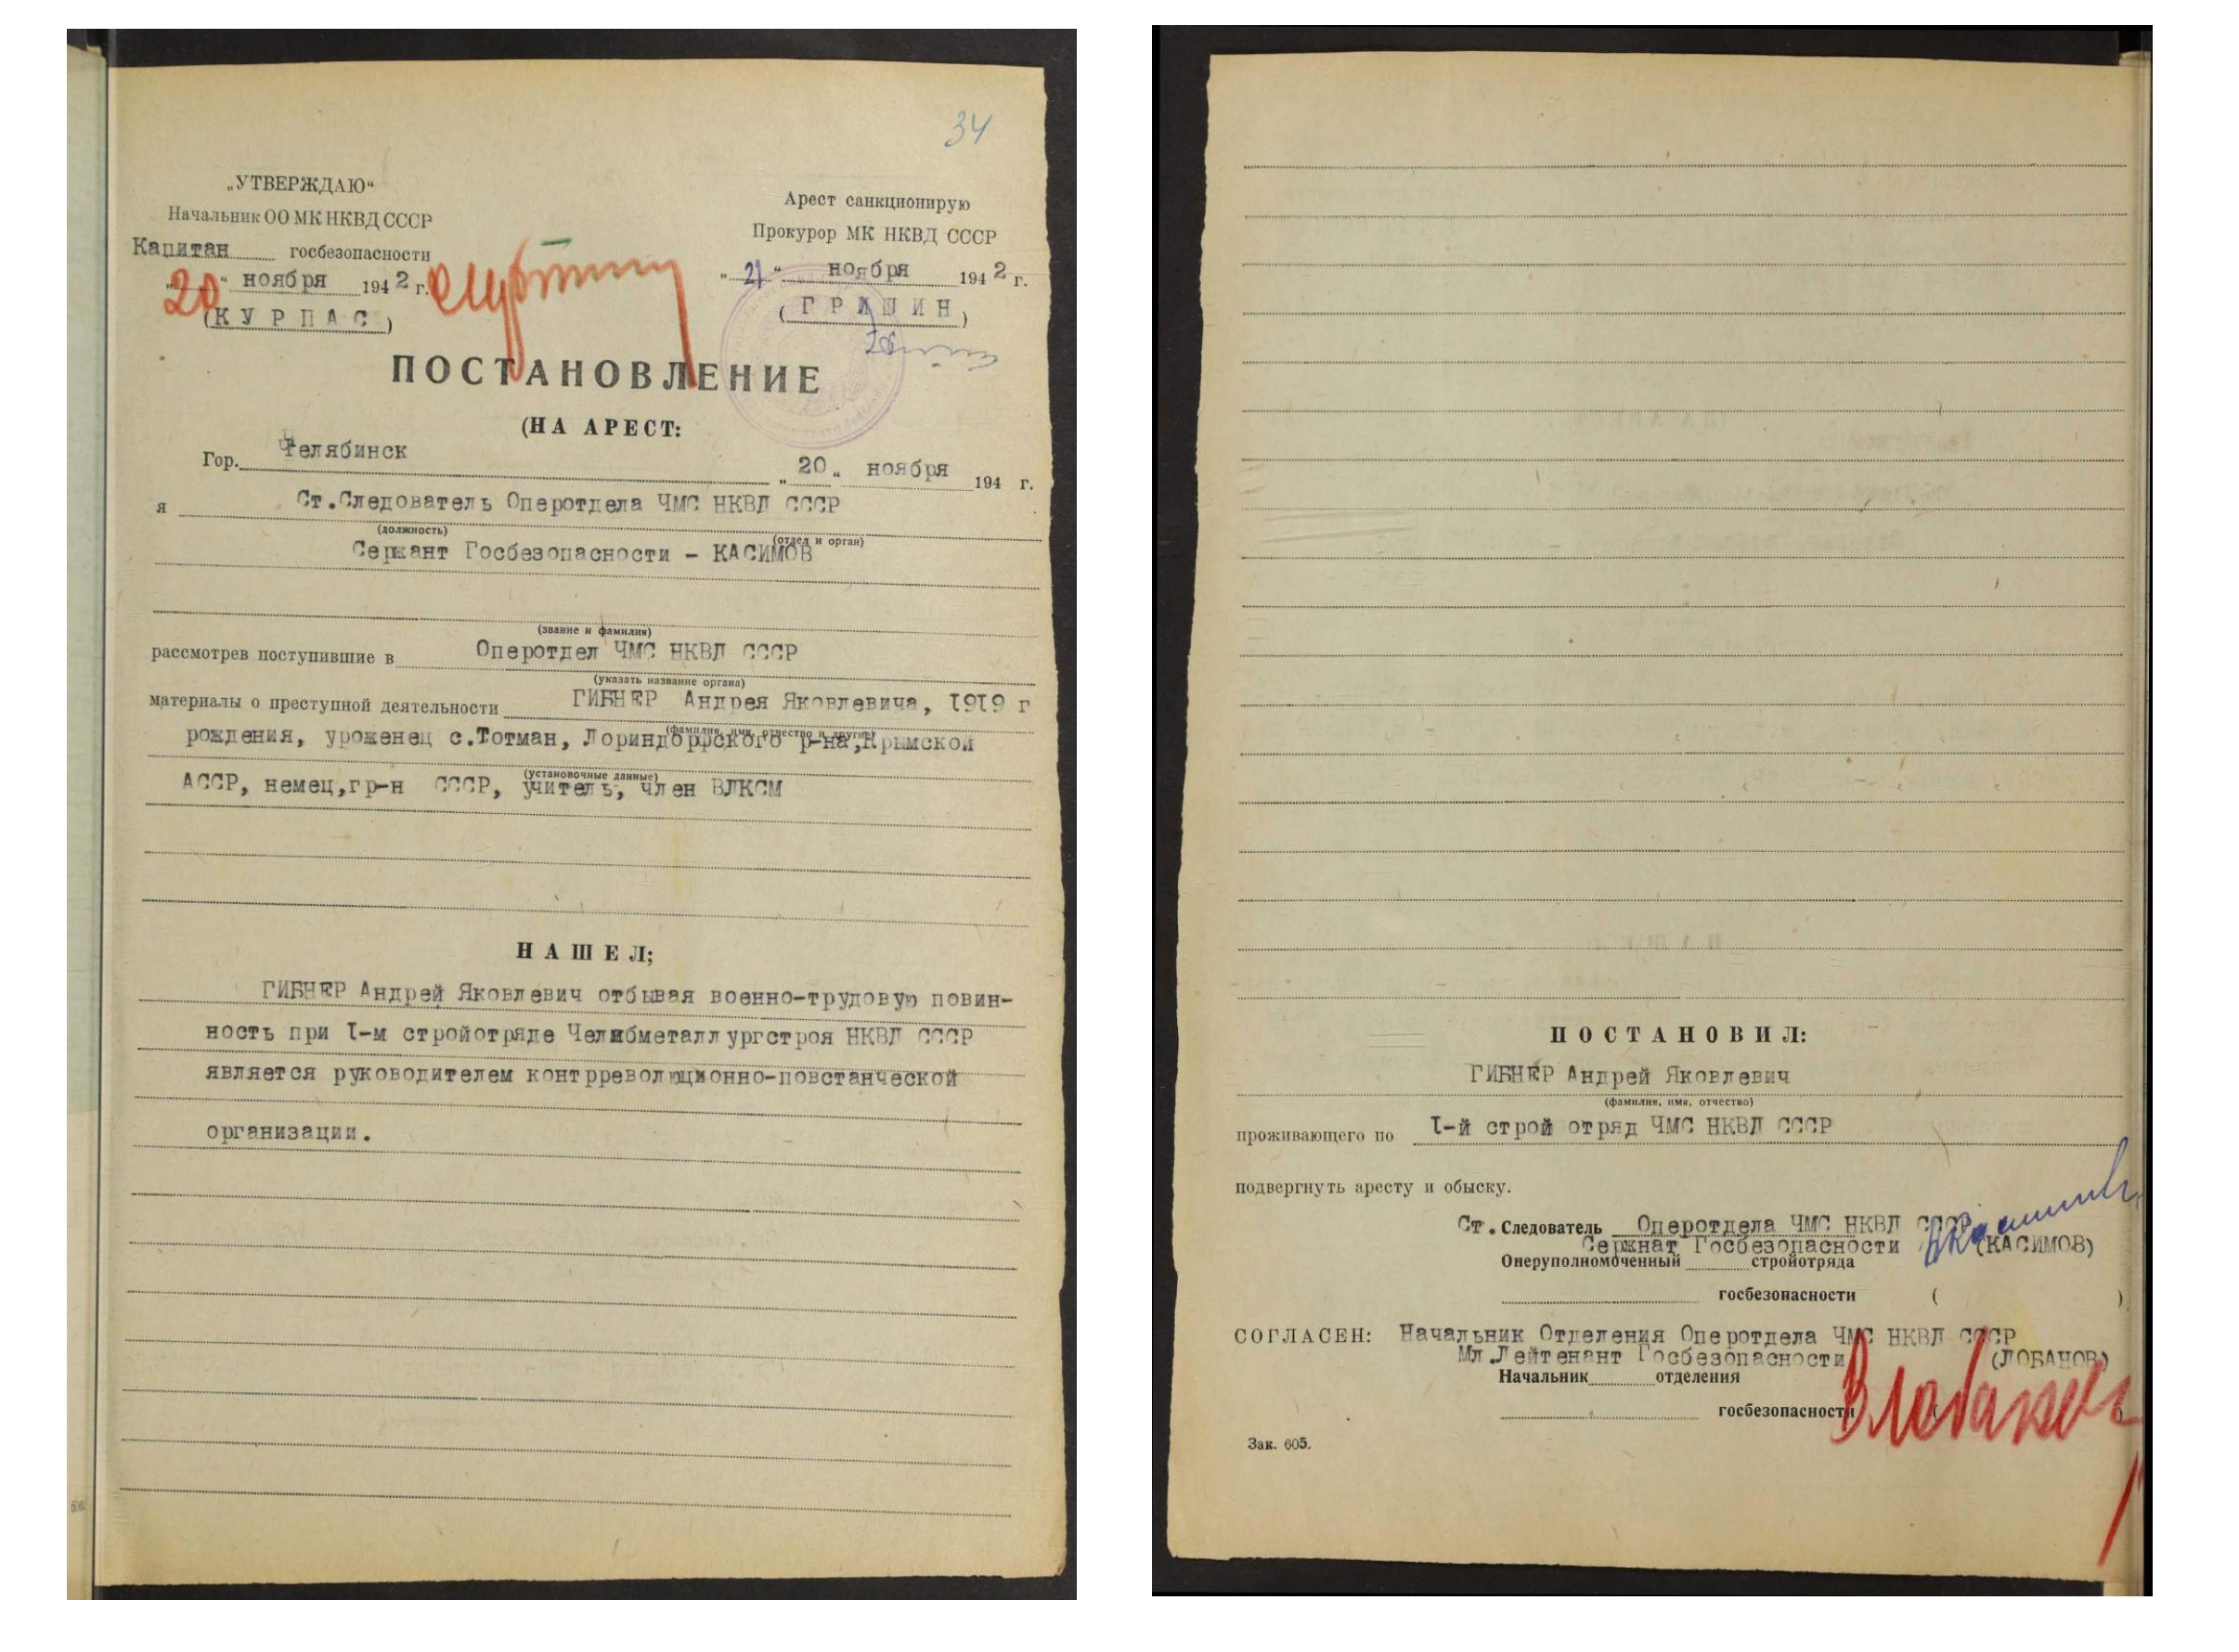 34
„УТВЕРЖДАЮ“
Начальник ОО МК НКВД СССР
Капитан госбезопасности
„20“ ноября 1942 г.
(КУРПАС)
Арест санкционирую
Прокурор МК НКВД СССР
„21“ ноября 1942 г.
(ГРИШИН)
ПОСТАНОВЛЕНИЕ
(НА АРЕСТ:
Гор. Челябинск „20„ ноября 194 г.
я Ст.Следователь Оперотдела ЧМС НКВД СССР
(должность) (отдел и орган)
Сержант Госбезопасности – КАСИМОВ
(звание и фамилия)
рассмотрев поступившие в Оперотдел ЧМС НКВД СССР
(указать название органа)
материалы о преступной деятельности ГИБНЕР Андрея Яковлевича, 1919 г
(фамилия, имя, отчество и другие)
рождения, уроженец с.Тотман, Лориндорфского р-на,Крымской
(установочные данные)
АССР, немец,гр-н СССР, учитель, член ВЛКСМ
НАШЕЛ;
ГИБНЕР Андрей Яковлевич отбывая военно-трудовую повин-
ность при 1-м стройотряде Челябметаллургстроя НКВД СССР
является руководителем контрреволюционно-повстанческой
организации.
ПОСТАНОВИЛ:
ГИБНЕР Андрей Яковлевич
(фамилия, имя, отчество)
проживающего по 1-й строй отряд ЧМС НКВД СССР
подвергнуть аресту и обыску.
Ст. Следователь Оперотдела ЧМС НКВД СССР
Сержнат Госбезопасности (КАСИМОВ)
Оперуполномоченный стройотряда
госбезопасности ( )
СОГЛАСЕН: Начальник Отделения Оперотдела ЧМС НКВД СССР
Мл.Лейтенант Госбезопасности (ЛОБАНОВ)
Начальник отделения
госбезопасности ( )
Зак. 605.